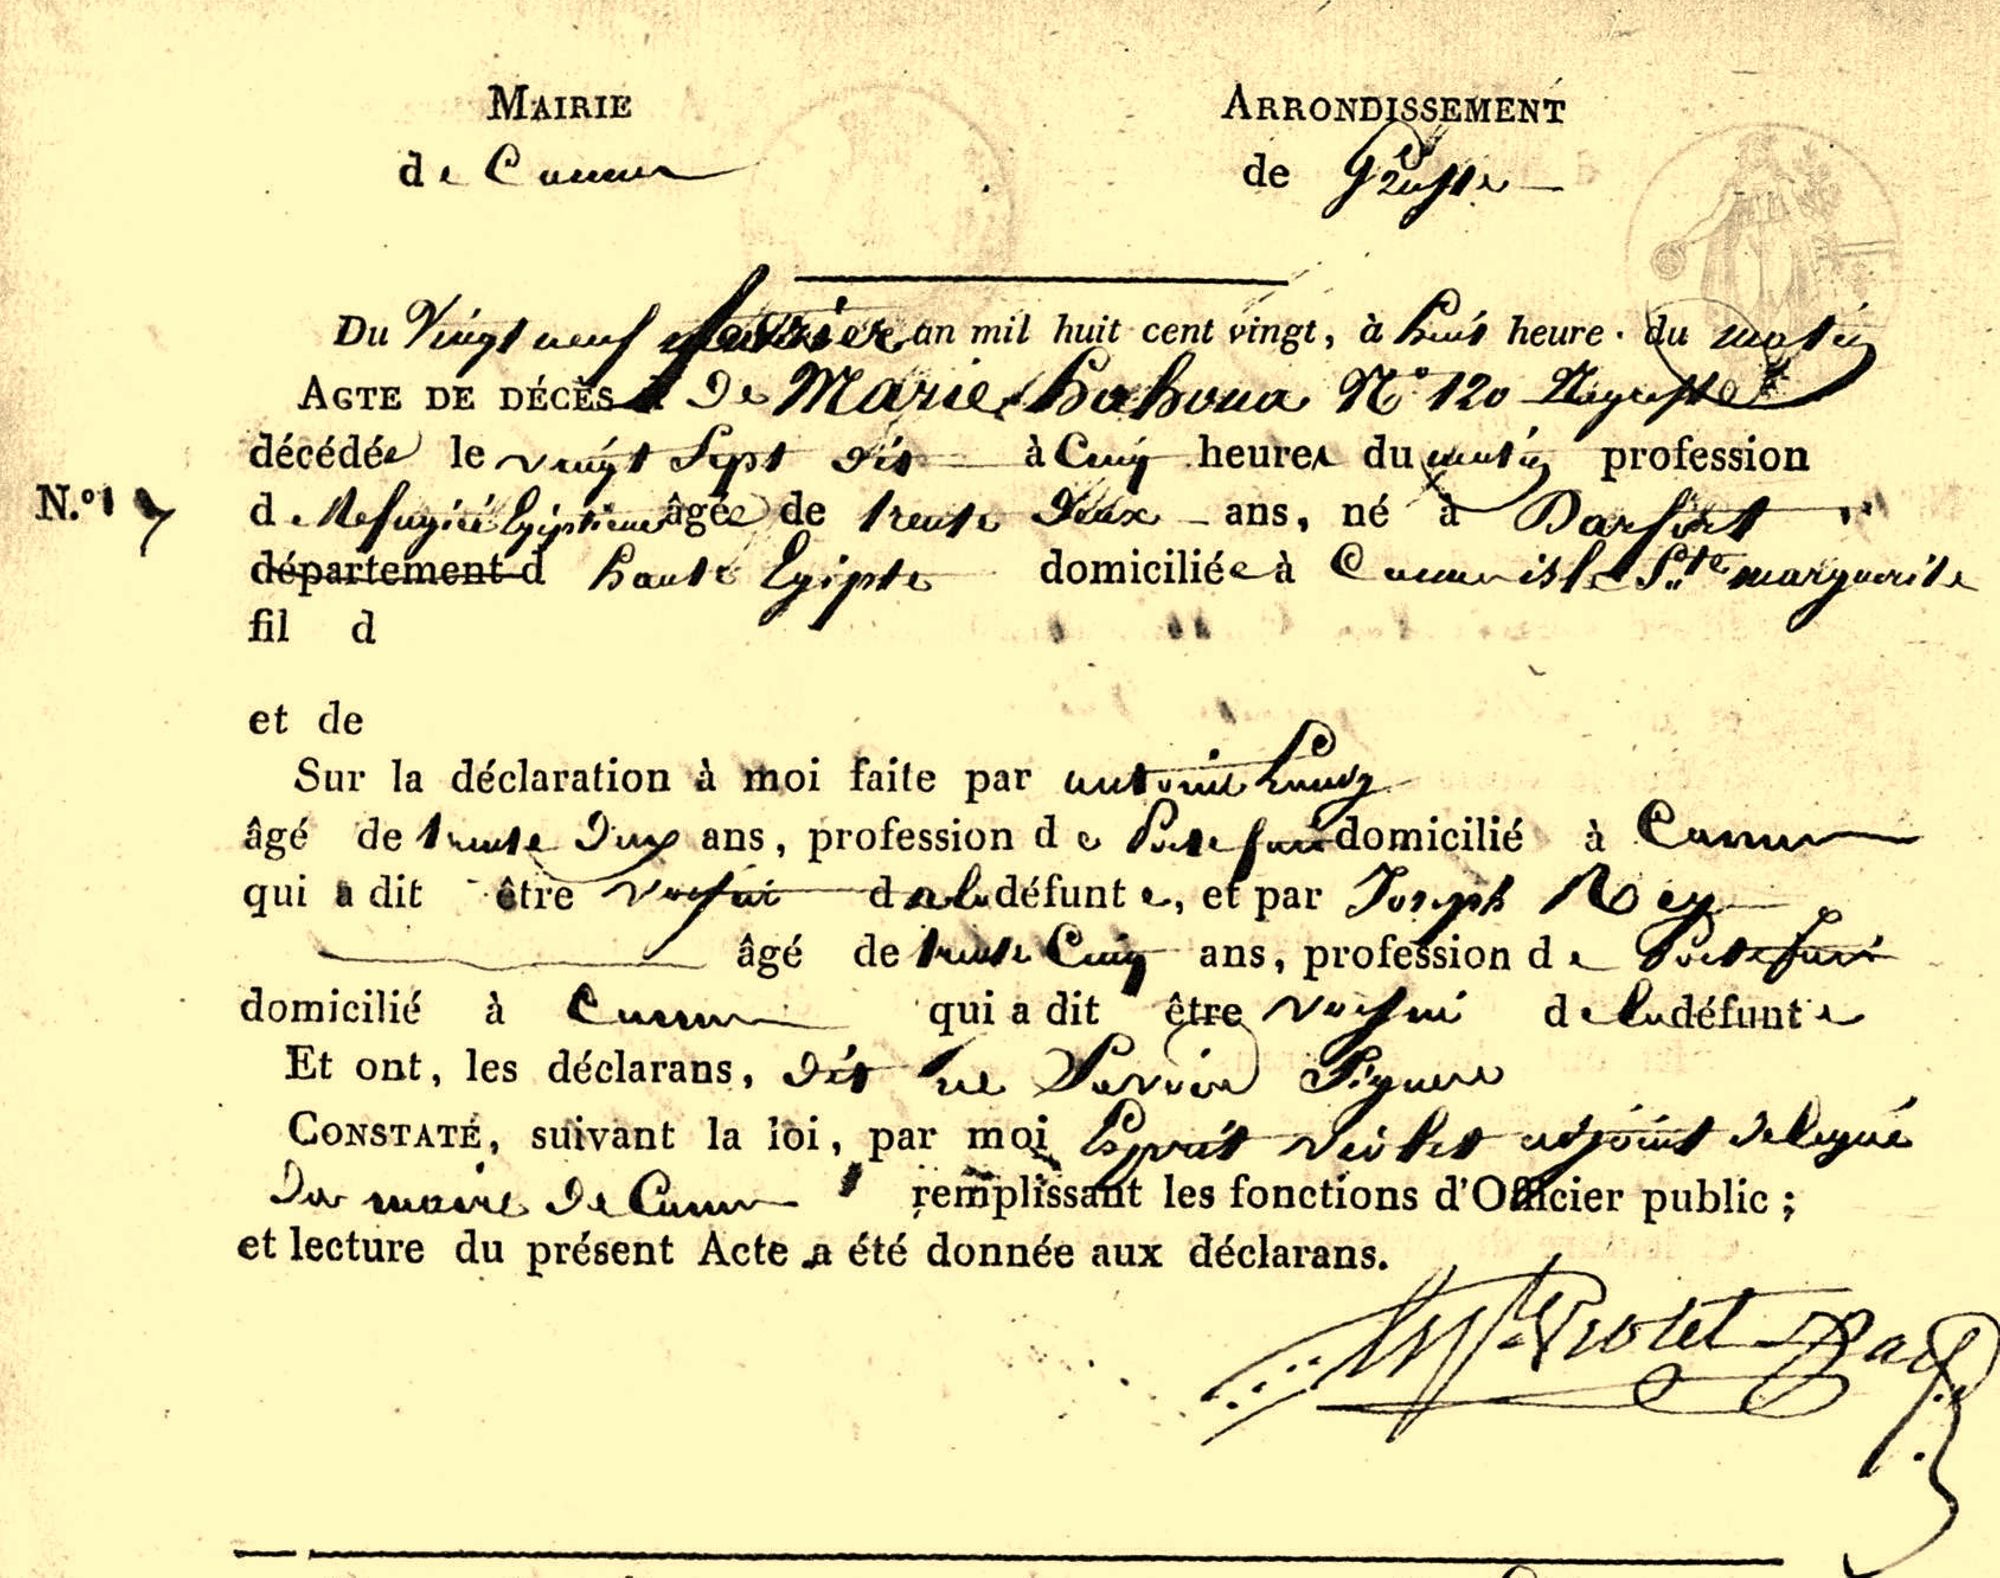 MAIRIE
de Cannes
ARRONDISSEMENT
de Grasse
Du Vingt neuf fevrier an mil huit cent vingt, à huit heure. du matin
ACTE DE DÉCÈS De Marie hahoua N° 120 Nayresse
décédée le vingt Sept dit à Cinq heures du matin profession
N.° 17
de Refugiée Egiptienne âgée de trente Deux ans, né à Darfort
département d haute Egipte domiciliée à Cannes isle Ste marguerite
fil d
et de
Sur la déclaration à moi faite par antoine
âgé de trente Deux ans, profession de Portefaix domicilié à Cannes
qui a dit être voisin de la défunte, et par Joseph Rey
âgé de trente Cinq ans, profession de Portefaix
domicilié à Cannes qui a dit être voisin de la défunte
Et ont, les déclarans, dit ne Savoir Signer
CONSTATÉ, suivant la loi, par moi Esprit Violet adjoint delegué
Du maire De Cannes remplissant les fonctions d'Officier public ;
et lecture du présent Acte a été donnée aux déclarans.
Violet